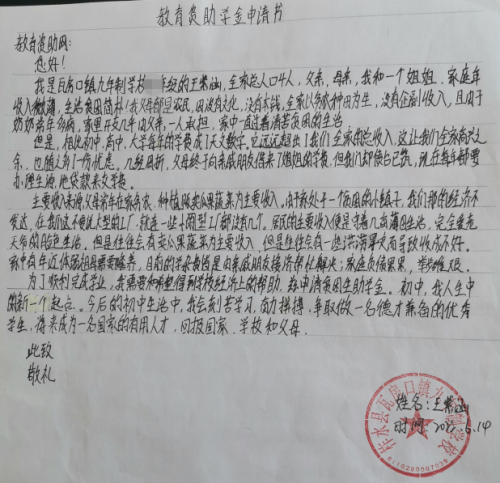 教育资助学金申请书
教育资助网：
您好！
我是瓦房口镇九年制学校 年级的王紫涵，全家总人口4人，父亲，母亲，我和一个姐姐。家庭年
收入微薄，生活贫困简朴！我父母都是农民，因没有文化，没有本钱，全家以务农种田为生，没有企副收入，且由于
奶奶常年多病，家里开支几乎由父亲一人承担，家中一直过着清苦贫困的生活。
但是，相比初中，高中，大学每年的学费成了天文数字。它远远超出了我们全家的总收入，这让我们全家高兴之
余，也随之有了一份忧虑。几经周折，父母终于向亲戚朋友借来了姐姐的学费，但我们却债台已筑，现在每年都要
办理生源地贷款来交学费。
主要收入来源父母常年在家务农，种植蔬菜瓜果蔬菜为主要收入。由于家处于一个贫困的小镇子，我们那的经济不
发达，在我们这不要说大型的工厂，就连一些小型工厂都没有几个。居民的主要收入便是守着几亩薄田生活，完全是靠
天命的 生活，但是往往会有卖瓜果蔬菜为主要收入，但是往往会有一些洪涝旱灾而导致收成不好。
家中有年迈体弱祖母需要赡养，目前的学杂费皆是由亲戚朋友接济帮忙解决；家庭负债累累，举步维艰。
为了顺利完成学业，我需要和希望得到学校经济上的帮助，故申请贫困生助学金。初中，我人生中
的新一个起点。今后的初中生活中，我会刻苦学习，奋力拼搏，争取做一名德才兼备的优秀
学生，将来成为一名国家的有用人才，回报国家、学校和父母。
此致
敬礼
姓名：王紫涵
时间： .6.14
柞水县瓦房口镇九年制学校